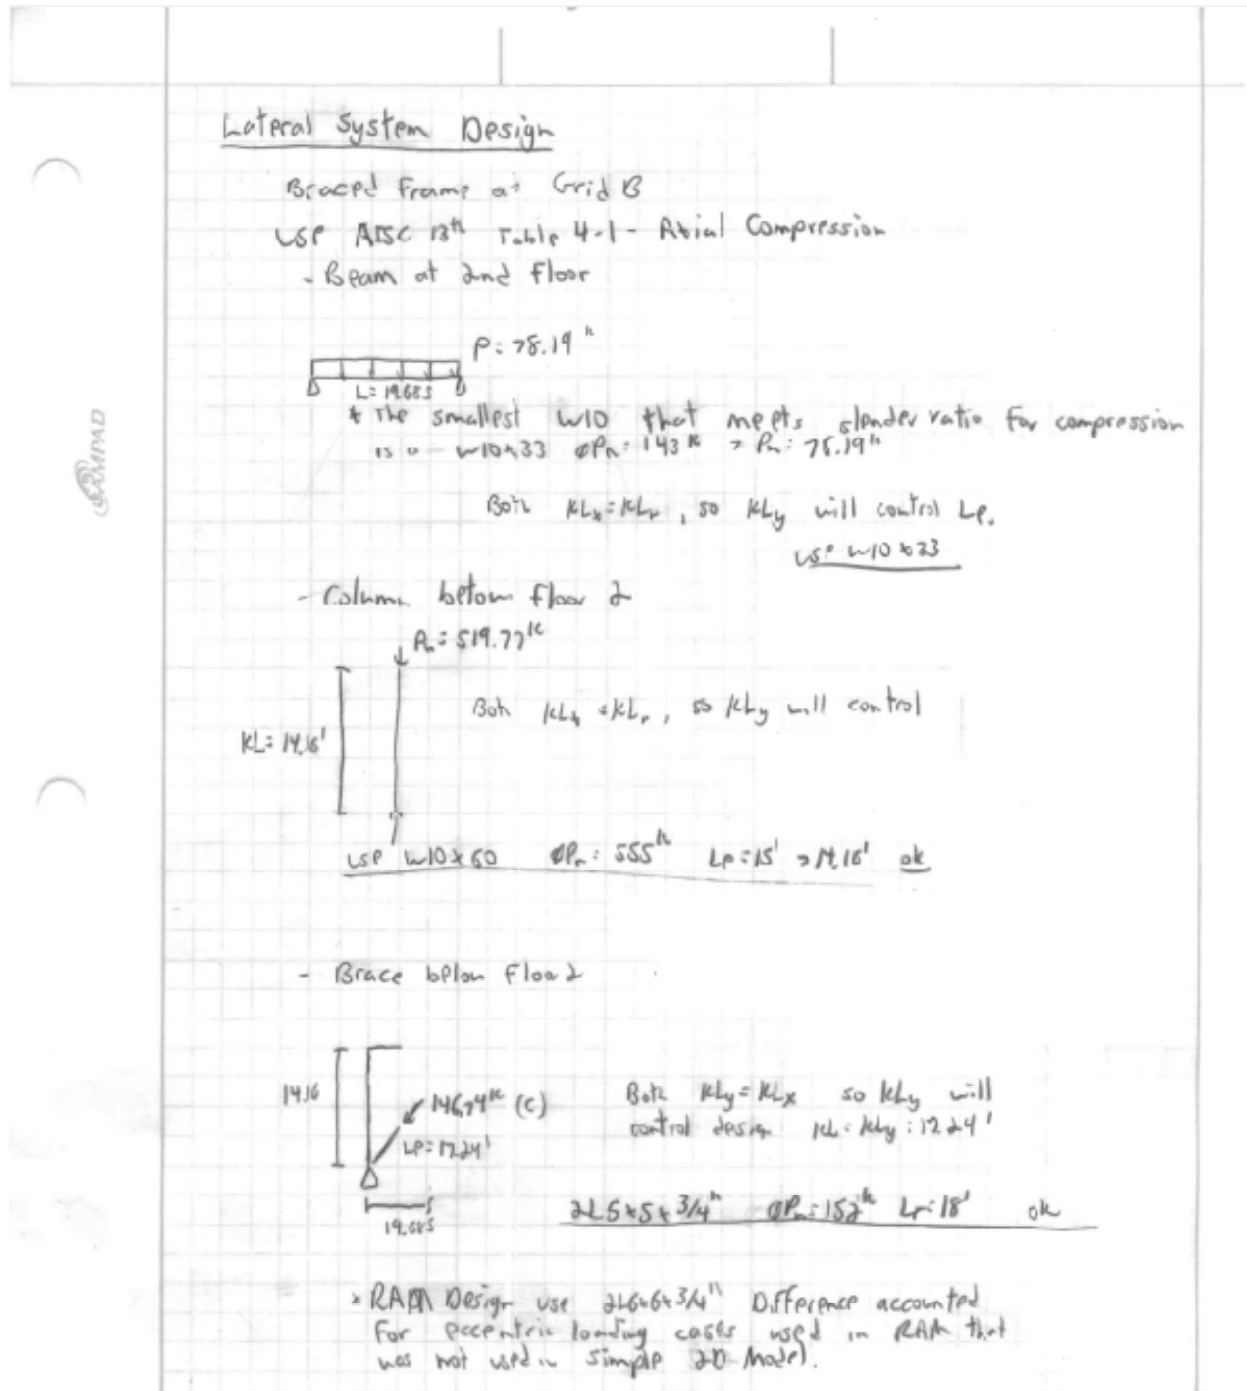 Lateral System Design
Braced Frame at Grid B
Use AISC 13th Table 4-1 - Axial Compression
- Beam at 2nd floor
P = 78.19 k
L = 19.685
* The smallest W10 that meets slender ratio for compression
is a W10x33 ØPn = 143 k > Pu = 78.19 k
Both KLx = KLy, so KLy will control Le.
Use W10x33
- Column below floor 2
Pu = 519.77 k
Both KLx = KLy, so KLy will control
KL = 14.16'
Use W10x60 ØPn = 555 k Le = 15' > 14.16' ok
- Brace below Floor 2
14.16
146.74 k (C)
Le = 17.24'
19.685
Both KLy = KLx so KLy will
control design KL = KLy = 17.24'
2L5x5x3/4" ØPn = 152 k Le = 18' ok
* RAM Design use 2L6x6x3/4" Difference accounted
For eccentric loading cases used in RAM that
was not used in simple 2D Model.
CAMPAD